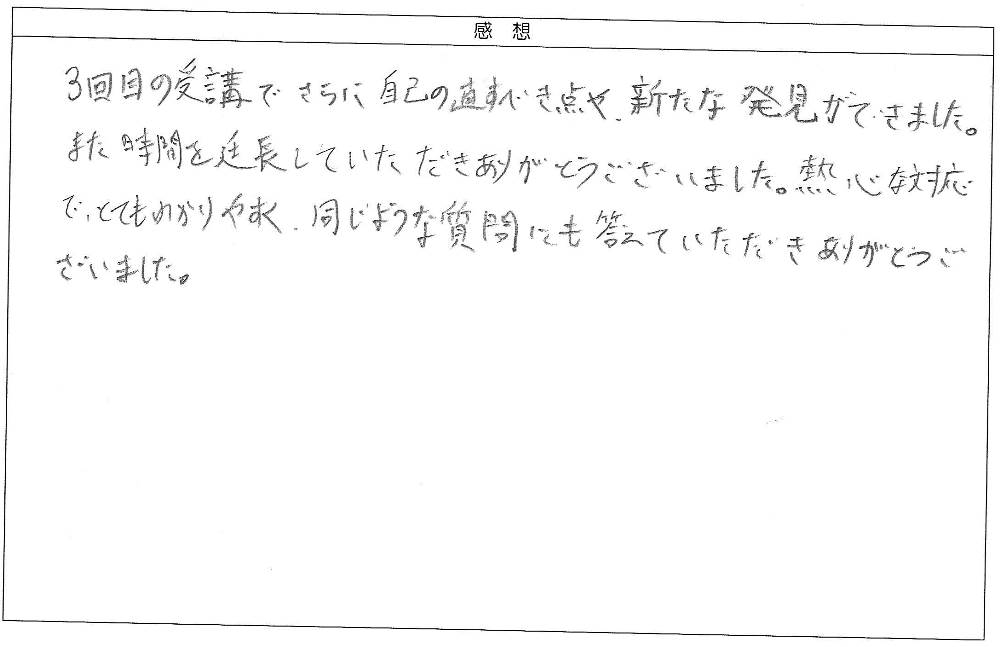 感想
3回目の受講でさらに自己の直すべき点や、新たな発見ができました。
また時間を延長していただきありがとうございました。熱心な対応
で、とてもわかりやすく、同じような質問にも答えていただきありがとうご
ざいました。